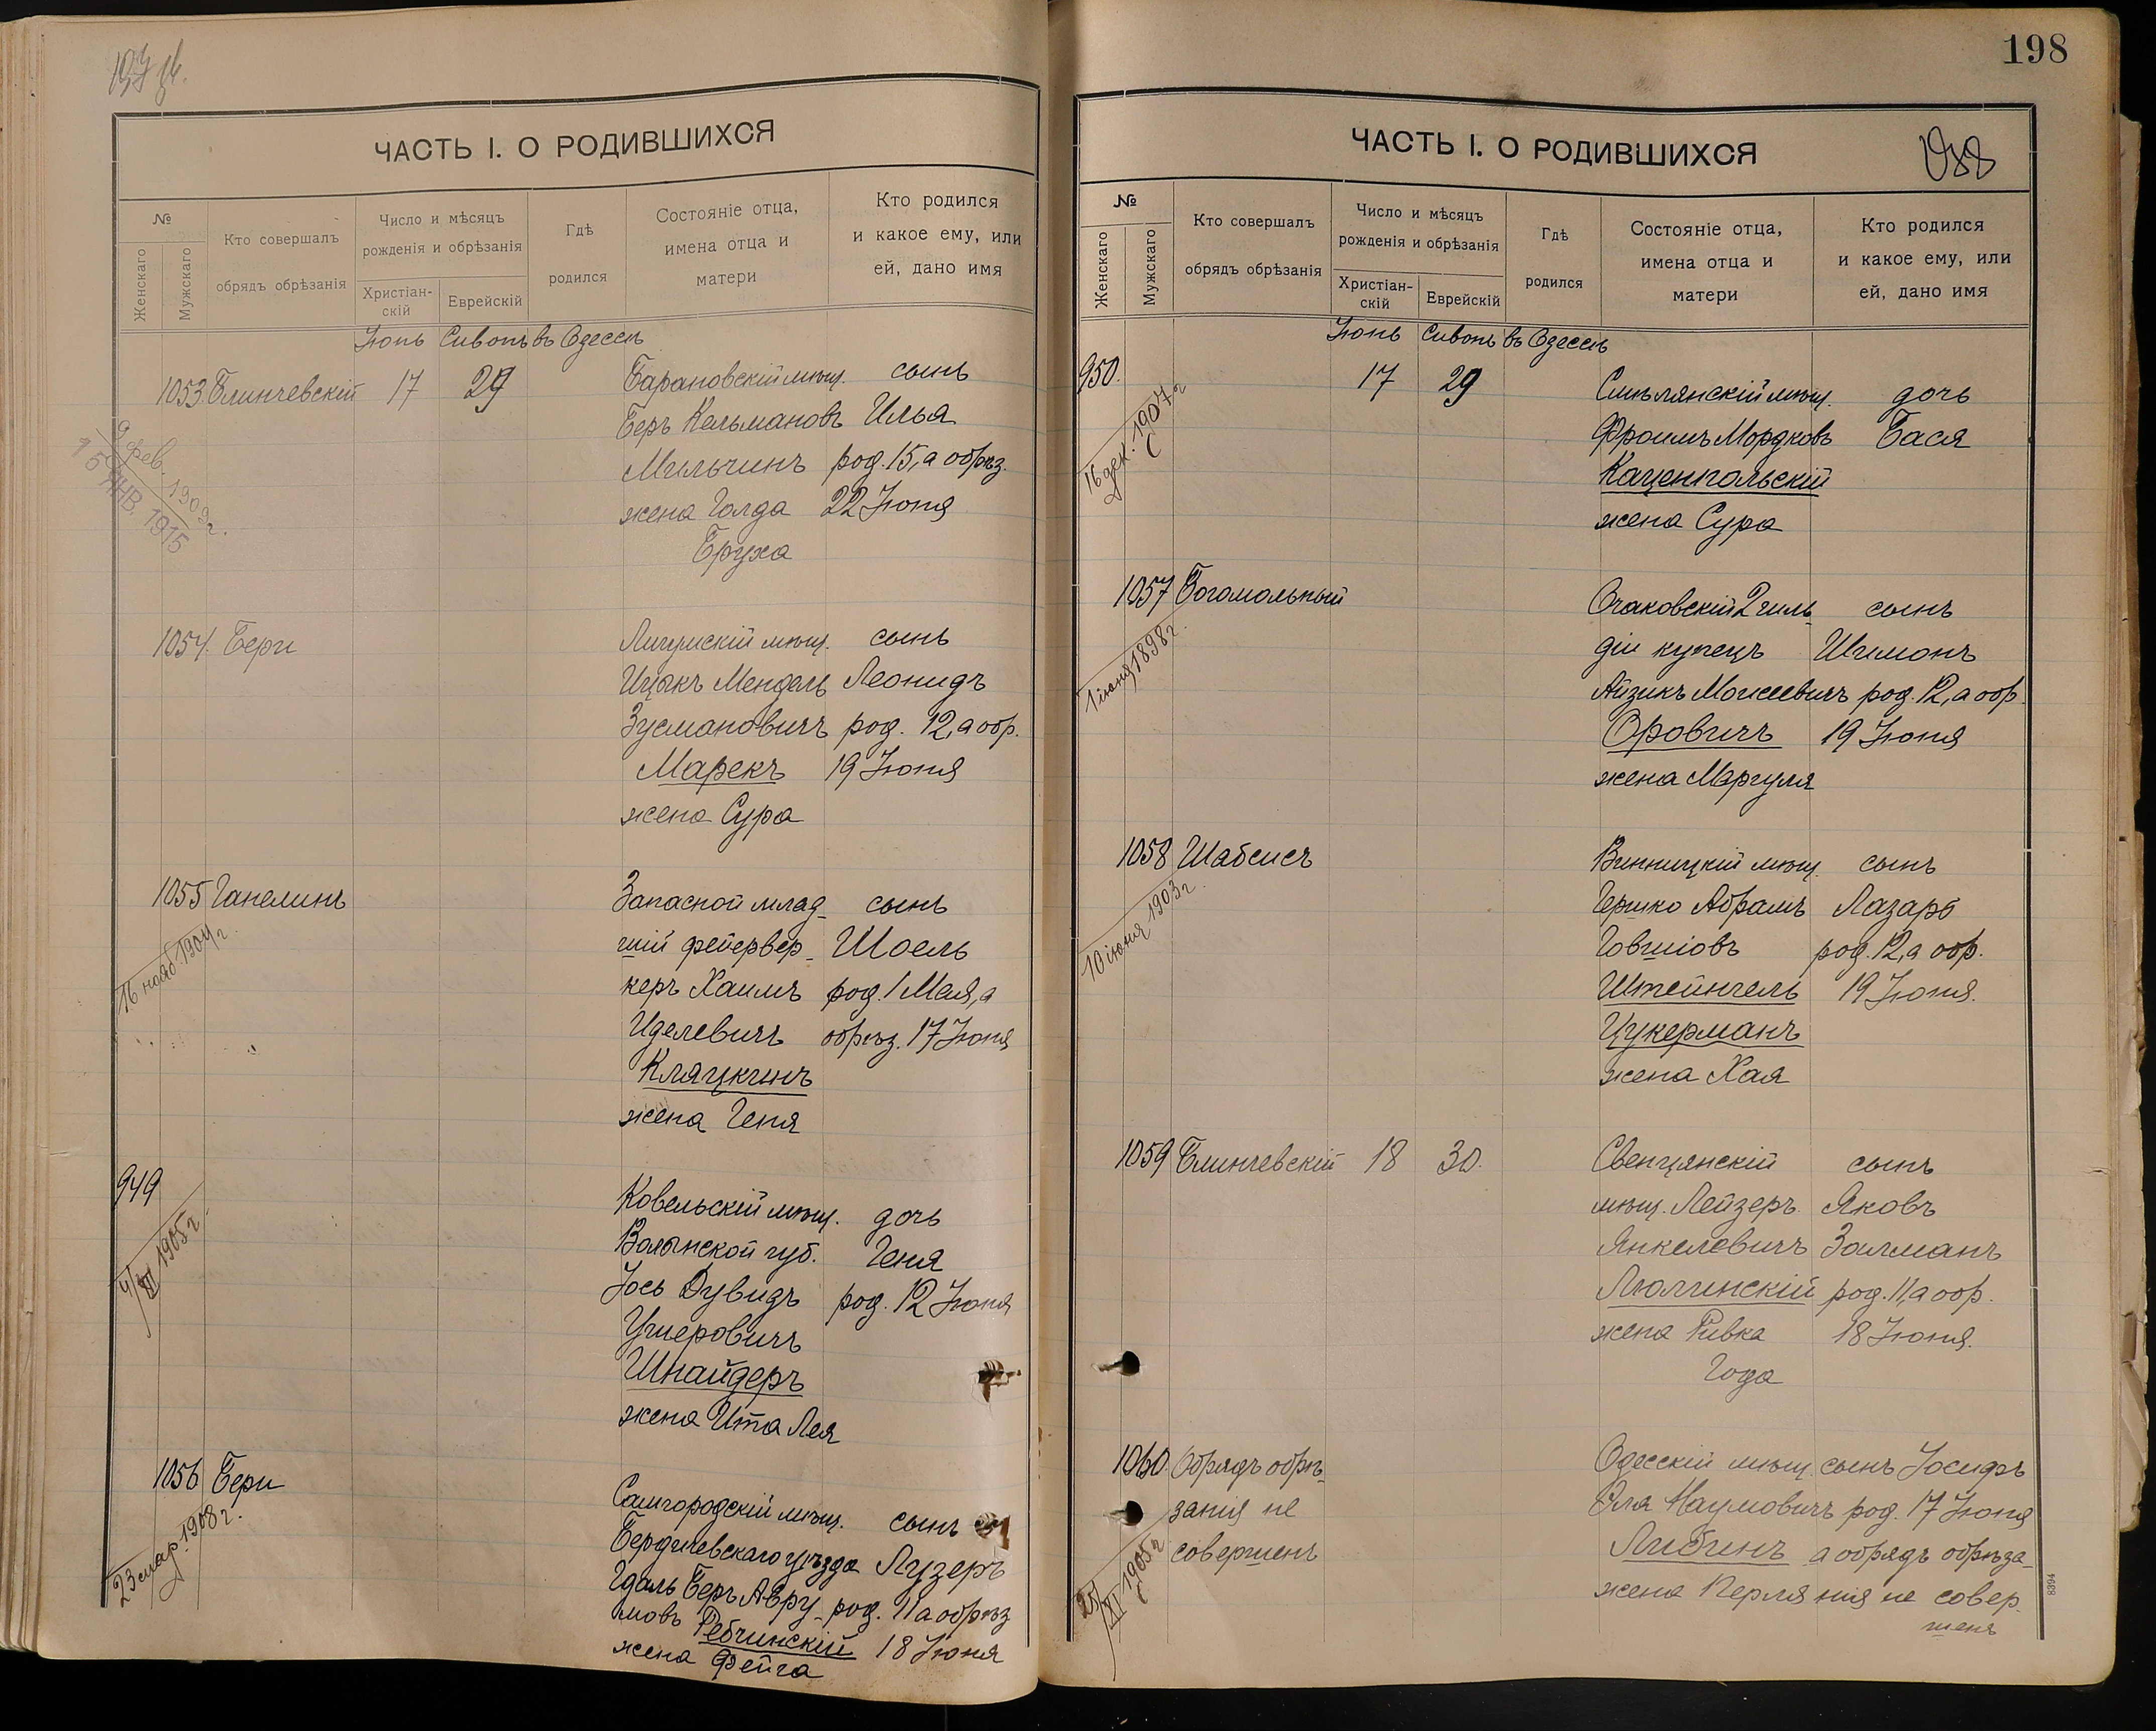 ЧАСТЬ I. О РОДИВШИХСЯ
№
Женскаго
Мужскаго
Кто совершалъ
обрядъ обрѣзанія
Число и мѣсяцъ
рожденія и обрѣзанія
Христіан-
скій
Еврейскій
Гдѣ
родился
Состояніе отца,
имена отца и
матери
Кто родился
и какое ему, или
ей, дано имя
Іюнь Сивонъ въ Одессѣ
1053. Блинчевскій 17 29 Барановскій мѣщ. сынъ
Беръ Кельмановъ Илья
Мильчинъ род. 15, а обрѣз.
жена Голда 22 Іюня
Бруха
9 фев. 1909 г.
15 ЯНВ. 1915
1054. Бери мѣщ. сынъ
Ицыкъ Мендель Леонидъ
Зусмановичъ род. 12, а обр.
Марекъ 19 Іюня
жена Сура
1055 Ганелинъ Запасной млад-
сынъ
шій фейервер- Шоель
керъ Хаимъ род. 1 Мая, а
Иделевичъ обрѣз. 17 Іюня
Кляцкинъ
жена Геня
16 нояб. 1904 г.
949 Ковельскій мѣщ. дочь
Волынской губ. Геня
Іось Дувидъ род. 12 Іюня
Ушеровичъ
Шнайдеръ
жена Ита Лея
4/XI 1905 г.
1056 Бери Самгородскій мѣщ. сынъ
Бердичевскаго уѣзда Лузеръ
Гдаль Беръ Авру- род. 11 а обрѣз
мовъ Ребчинскій 18 Іюня
жена Фейга
23 мар. 1908 г.
198
ЧАСТЬ I. О РОДИВШИХСЯ
№
Женскаго
Мужскаго
Кто совершалъ
обрядъ обрѣзанія
Число и мѣсяцъ
рожденія и обрѣзанія
Христіан-
скій
Еврейскій
Гдѣ
родился
Состояніе отца,
имена отца и
матери
Кто родился
и какое ему, или
ей, дано имя
Іюнь Сивонъ въ Одессѣ
950. 17 29 Смѣлянскій мѣщ. дочь
Фроимъ Мордковъ Бася
Каценпольскій
жена Сура
16 дек. 1907 г
1057 Богомольный Очаковскій 2 гиль-
сынъ
діи купецъ Шимонъ
Айзикъ Моисеевичъ род. 12, а обр.
Оровичъ 19 Іюня
жена Маргуля
1 іюня 1898 г.
1058 Шабсисъ Винницкій мѣщ. сынъ
Гершко Абрамъ Лазарь
Говшіовъ род. 12, а обр.
Штейнгель 19 Іюня.
Цукерманъ
жена Хая
10 іюня 1903 г.
1059 Блинчевскій 18 30. Свенцянскій сынъ
мѣщ. Лейзеръ Яковъ
Янкелевичъ Залманъ
род. 11, а обр.
жена Ривка 18 Іюня.
Года
1060. Обрядъ обрѣ-
занія не
совершенъ
Одесскій мѣщ. сынъ Іосифъ
Эля Наумовичъ род. 17 Іюня
Либинъ а обрядъ обрѣза-
жена Перля нія не совер-
шенъ
XI 1905 г
8394